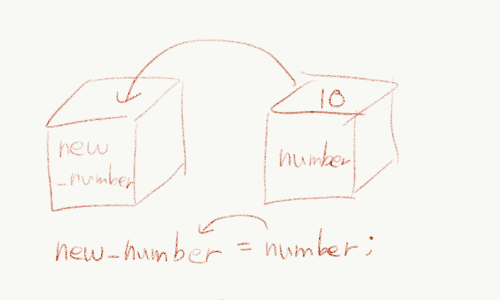 10
new
_number
number
new_number = number;